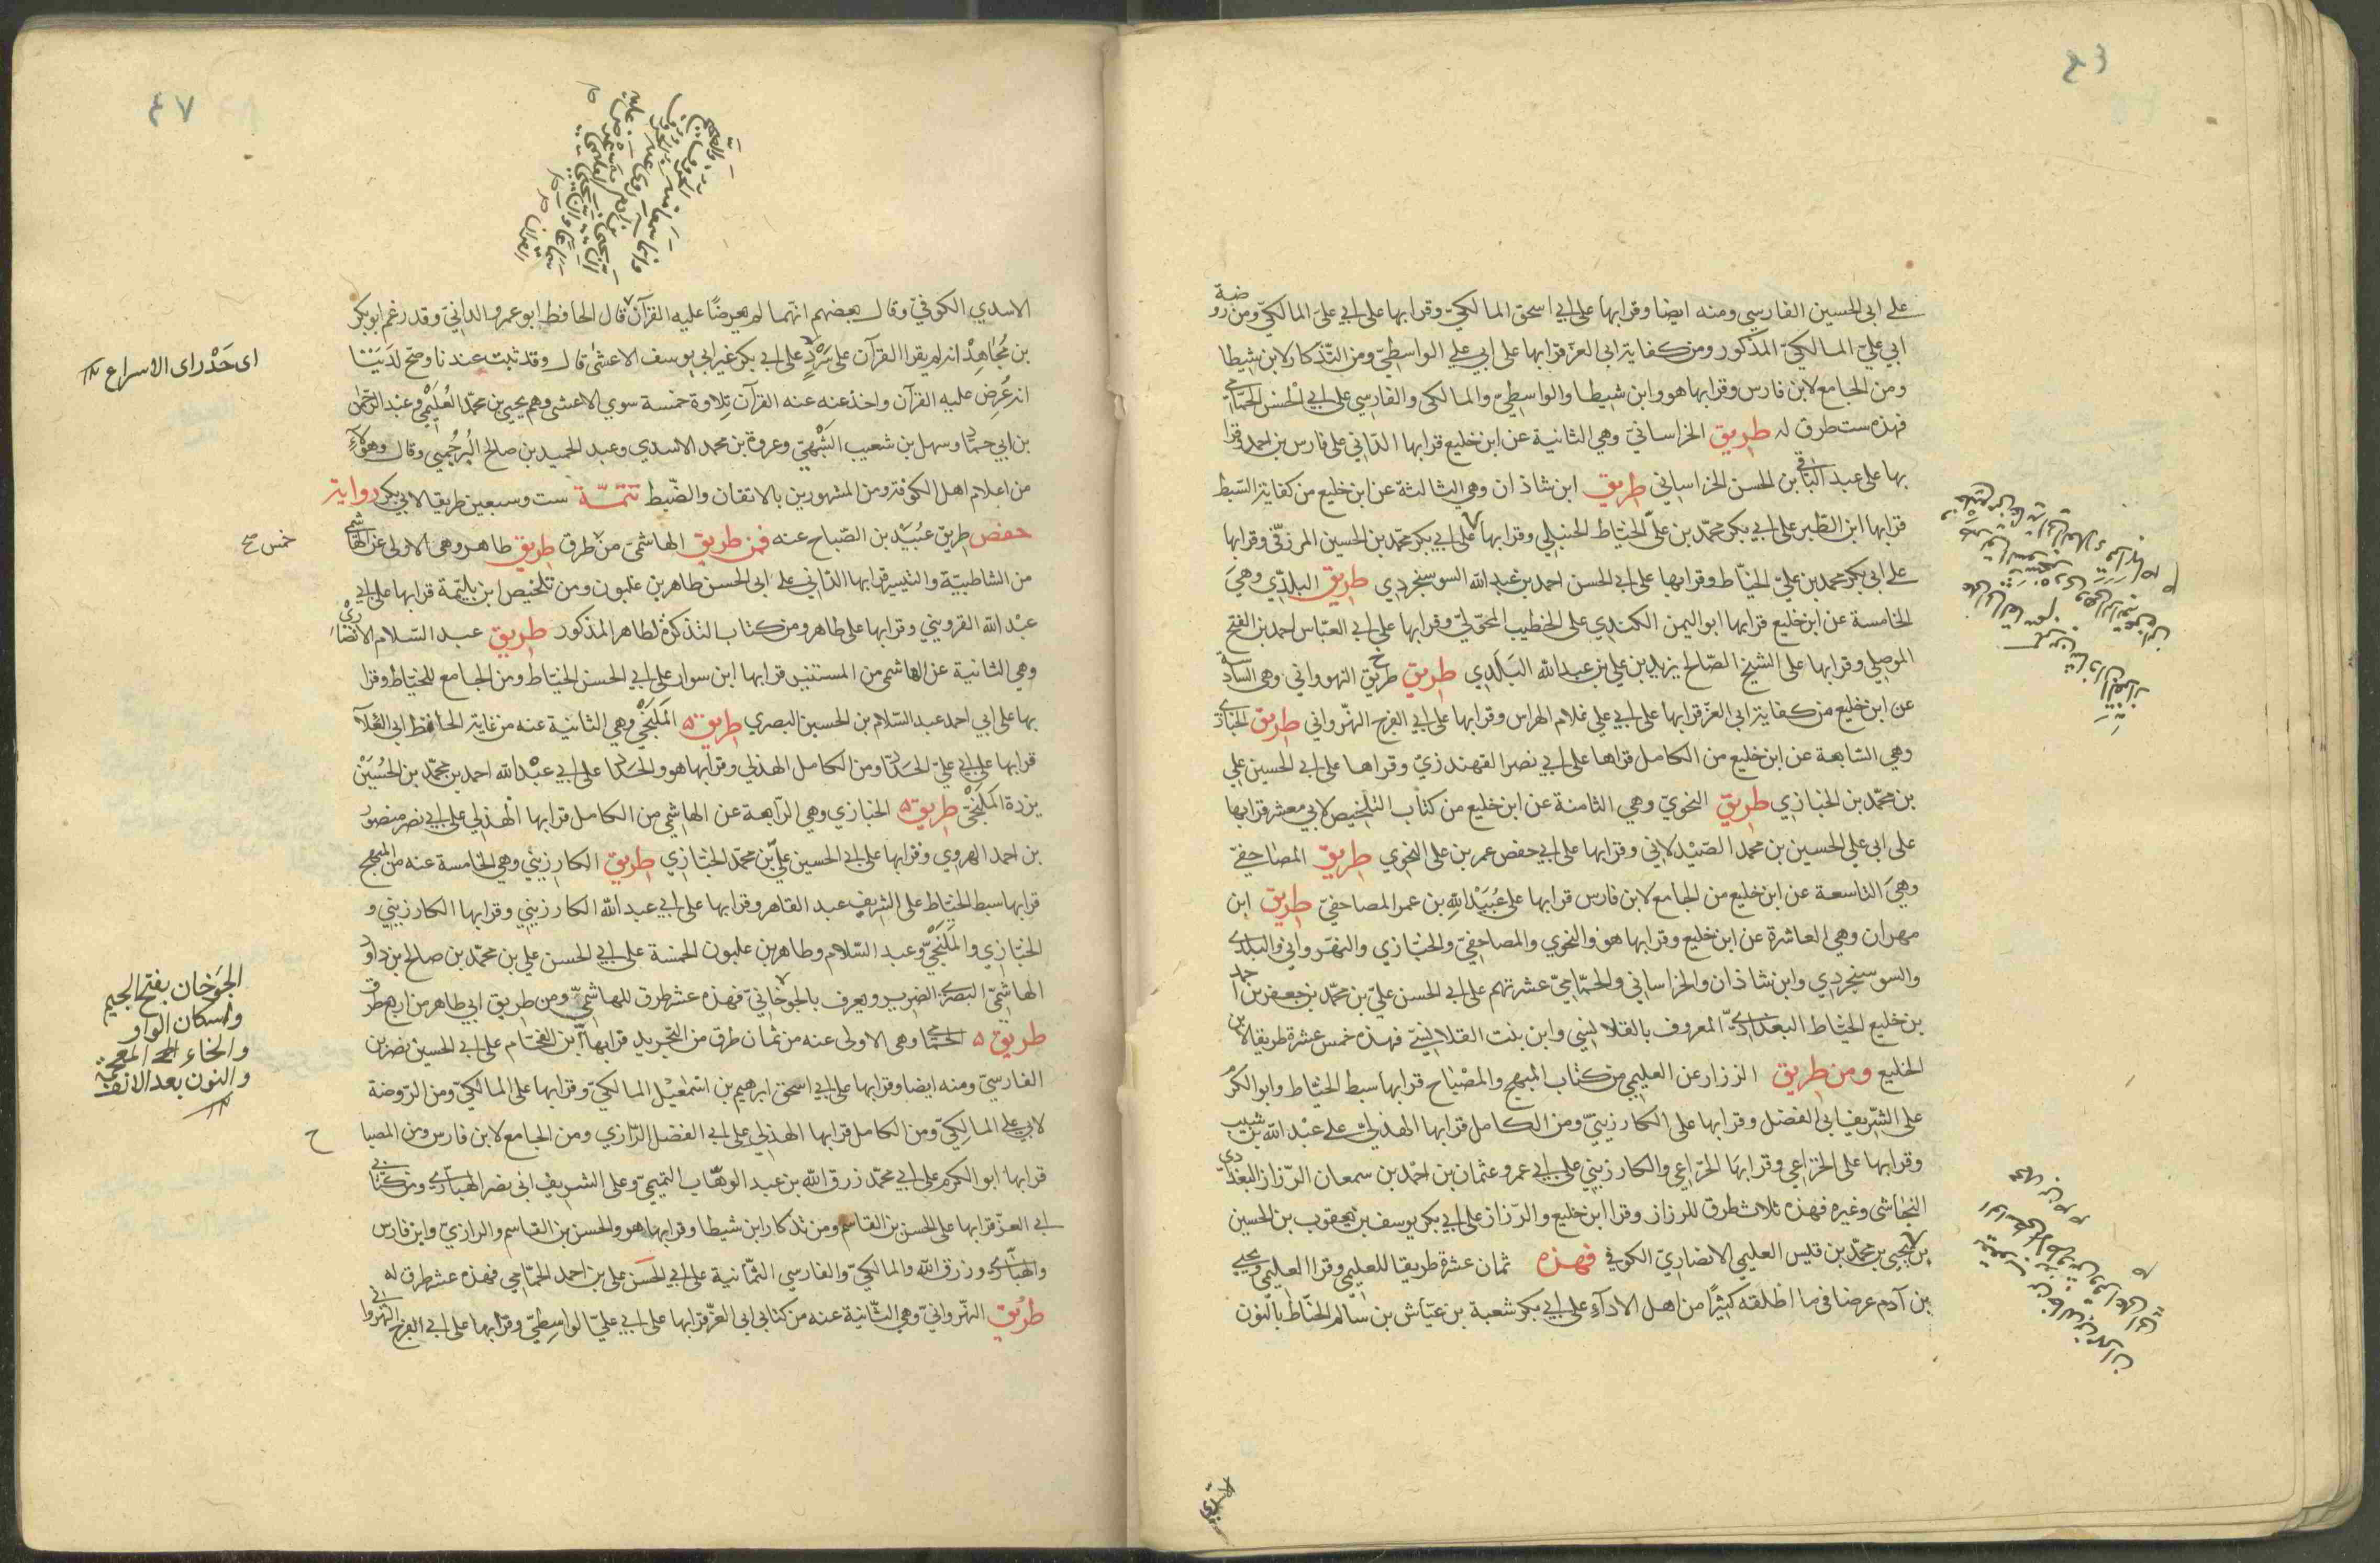 على ابى الحسين الفارسي ومنه ايضا وقرا بها على ابي اسحق المالكيّ وقرا بها على ابي على المالكيّ ومن روضة
ابي عليّ المالكيّ المذكور ومن كفاية ابى العز قرا بها على ابي علي الواسطيّ ومن التّذكار لابن شيطا
ومن الجامع لابن فارس وقرا بها هو وابن شيطا والواسطيّ والمالكى والفارسي على ابي الحسن الحمّامي
فهذه ست طرق له طريق الخراسانيّ وهي الثانية عن ابن خليع قرا بها الدّاني على فارس بن احمد وقرا
بها على عبد الباقي بن الحسن الخراساني طريق ابن شاذان وهي الثالثة عن ابن خليع من كفاية السّبط
قرا بها ابن الطّبر على ابي بكر محمّد بن علىّ الخيّاط الحنبلي وقرا بها على ابي بكر محمّد بن الحسين المرزقّى وقرا بها
على ابى بكر محمد بن عليّ الخيّاط وقرا بها على ابي الحسن احمد بن عبد الله السوسنجردي طريق البلدّي وهيَ
الخامسة عن ابن خليع قرا بها ابو اليمن الكندي على الخطيب المحوّليّ وقرا بها على ابي العبّاس احمد بن الفتح
الموصلي وقرا بها على الشيخ الصّالح يزيد بن علي بن عبد الله البَلَدِي طريق طريق النهرواني وهى السّادسة
عن ابن خليع من كفاية ابى العز قرا بها على ابي علي غلام الهراس وقرا بها على ابي الفرج النهرواني طريق الخبازي
وهي السّابعة عن ابن خليع من الكامل قراها على ابي نصر القهندزيّ وقراها على ابي الحسين علي
بن محمّد بن الخبازي طريق النحويّ وهي الثامنة عن ابن خليع من كتاب التلخيص لابي معشر قرا بها
على ابي علي الحسين بن محمد الصّيْدلاني وقرا بها على ابي حفص عمر بن على النحوي طريق المصاحفيّ
وهيَ التاسعة عن ابن خليع من الجامع لابن فارس قرا بها على عُبَيْدِ اللهِ بن عمر المصاحفيّ طريق ابن
مهران وهي العاشرة عن ابن خليع وقرا بها هو والنحوي والمصاحفيّ والخبّازي والنهرواني والبلدي
والسوسنجردي وابن شاذان والخراساني والحمّاميّ عشرتهم على ابي الحسن عليّ بن محمّد بن جعفر بن احمد
بن خليع الخيّاط البغداديّ المعروف بالقلانسي وابن بنت القلانسيّ فهذه خمس عشرة طريقا لابن
الخليع ومن طريق الرزاز عن العليمي من كتاب المبهج والمصْبَاح قرا بها سبط الخيّاط وابو الكرم
على الشّريف ابى الفضل وقرا بها على الكارزينيّ ومن الكامل قرا بها الهذلي على عبْد الله بن شبيب
وقرا بها على الخزاعي وقرا بهَا الخزاعي والكارزيني على ابي عمرو عثمان بن احمْد بن سمعان الرّزاز البغداديّ
النجاشى وغيره فهذه ثلاث طرق للرزاز وقرا ابن خليع والرّزاز على ابي بكر يوسف بن يعقوب بن الحسين
بن يحيى بن محمّد بن قيس العليمي الانصاريّ الكوفي فهذه ثمان عشرة طريقا للعليميّ وقرا العليمي ويحيى
بن آدم عرضا فى ما اطلقه كثيرًا من اهل الادآءِ على ابي بكر شعبة بن عيّاش بن سالم الحنّاط بالنّون
٤٧
الاسدي الكوفيّ وقال بعضهم انّهما لم يعرضاً عليه القرآن قال الحافظ ابو عمرو الدانيّ وقد زعم ابو بكر
بن مُجاهِدْ انه لم يقرا القرآن على سَرْدٍ على ابي بكر غير ابي يوسف الاعشى قال وقد ثبت عندنا وصحّ لدَيْنَا
انه عُرِضَ عليه القرآن واخذ عنه عنه القرآن تِلاوة خمسة سوي الاعشى وهم يحيى بن محمّد العُليْميّ وعبْد الرّحمٰن
بن ابي حمّاد وسهل بن شعيب الشَّهْبيّ وعروة بن محمد الاسدي وعبد الحميد بن صالح البُرجُمِيى وقال وهؤلآءِ
من اعلام اهل الكوفة ومن المشهورين بالاتقان والضّبط تتمّة ست وسبعين طريقا لابي بكر رواية
حفص طريق عُبَيْدْ بن الصّباح عنه فمن طريق الهاشميّ من طرق طريق طاهر وهي الاولى عن الهاشمي
من الشاطبيّة والتيسير قرا بها الدّاني على ابي الحسن طاهر بن غلبون ومن تلخيص ابن بليّمة قرا بها على ابي
عبْد الله القزويني وقرا بها على طاهر ومن كتاب التذكرة لطاهر المذكور طريق عبد السّلام الانصاري
وهي الثانية عن الهاشمى من المستنير قرا بها ابن سوار على ابي الحسن الخيّاط ومن الجامع للخيّاط وقرا
بها على ابي احمد عبد السّلام بن الحسين البصري طريق المَلَنجيْ وهي الثانية عنه من غاية الحافظ ابي العَلآ
قرا بها على ابي عليّ الحدّاد ومن الكامل الهذلي وقرا بها هو والحدّاد على ابي عبْد الله احمد بن محمّد بن الحُسَيْن
يزدة المَلَنجيّ طريق الخبازي وهي الرّابعة عن الهاشمي من الكامل قرا بها الهذلي على ابي نصر منصور
بن احمد الهروي وقرا بها على ابي الحسين عليّ بن محمّد الخبّازي طريق الكارزيني وهي الخامسة عنه من المبهج
قرا بها سبط الخيّاط على الشريف عبد القاهر وقرا بها على ابي عبد الله الكارزيني وقرا بها الكارزيني و
الخبّازي والمَلنجيّ وعبد السّلام وطاهر بن غلبون الخمسة على ابي الحسن علي بن محمّد بن صالح بن داود
الهاشميّ البصري الضرير ويعرف بالجوخانيّ فهذه عشر طرق للهاشميّ ومن طريق ابي طاهر من اربع طرق
طريق الحمّامي وهي الاولى عنه من ثمان طرق من التجريد قرا بها ابن الفحّام على ابي الحسين نصر بن
الفارسيّ ومنه ايضا وقرا بها على ابي اسحق ابرهيم بن اسمٰعيْل المالكيّ وقرا بها على المالكيّ ومن الرّوضة
لابي على المالِكيّ ومن الكامل قرا بها الهذلي على ابي الفضل الرّازي ومن الجامع لابن فارس ومن المصبا
قرا بها ابو الكرم على ابي محمّد رزق الله بن عبد الوهّاب التميميّ وعلى الشريف ابي نصر الهبّاري ومن كتابي
ابي العزّ قرا بها على الحسن بن القاسم ومن تذكار ابن شيطا وقرا بها هو والحسن بن القاسم والرازيّ وابن فارس
والهبّاري ورزق الله والمالكيّ والفارسي الثمّانية على ابي الحَسَن على بن احمد الحمّامي فهذه عشر طرق له
طريق النّهروانيّ وهي الثّانية عنه من كتابي ابي العزّ قرا بها على ابي عليّ الواسِطيّ وقرا بها على ابي الفرج النّهرواني
اى حَدْر اى الاسراع
خمس صح
الجَوْخان بفتح الجيم
واسكان الواو
والخاء المعجمة
والنون بعد الالف
ح